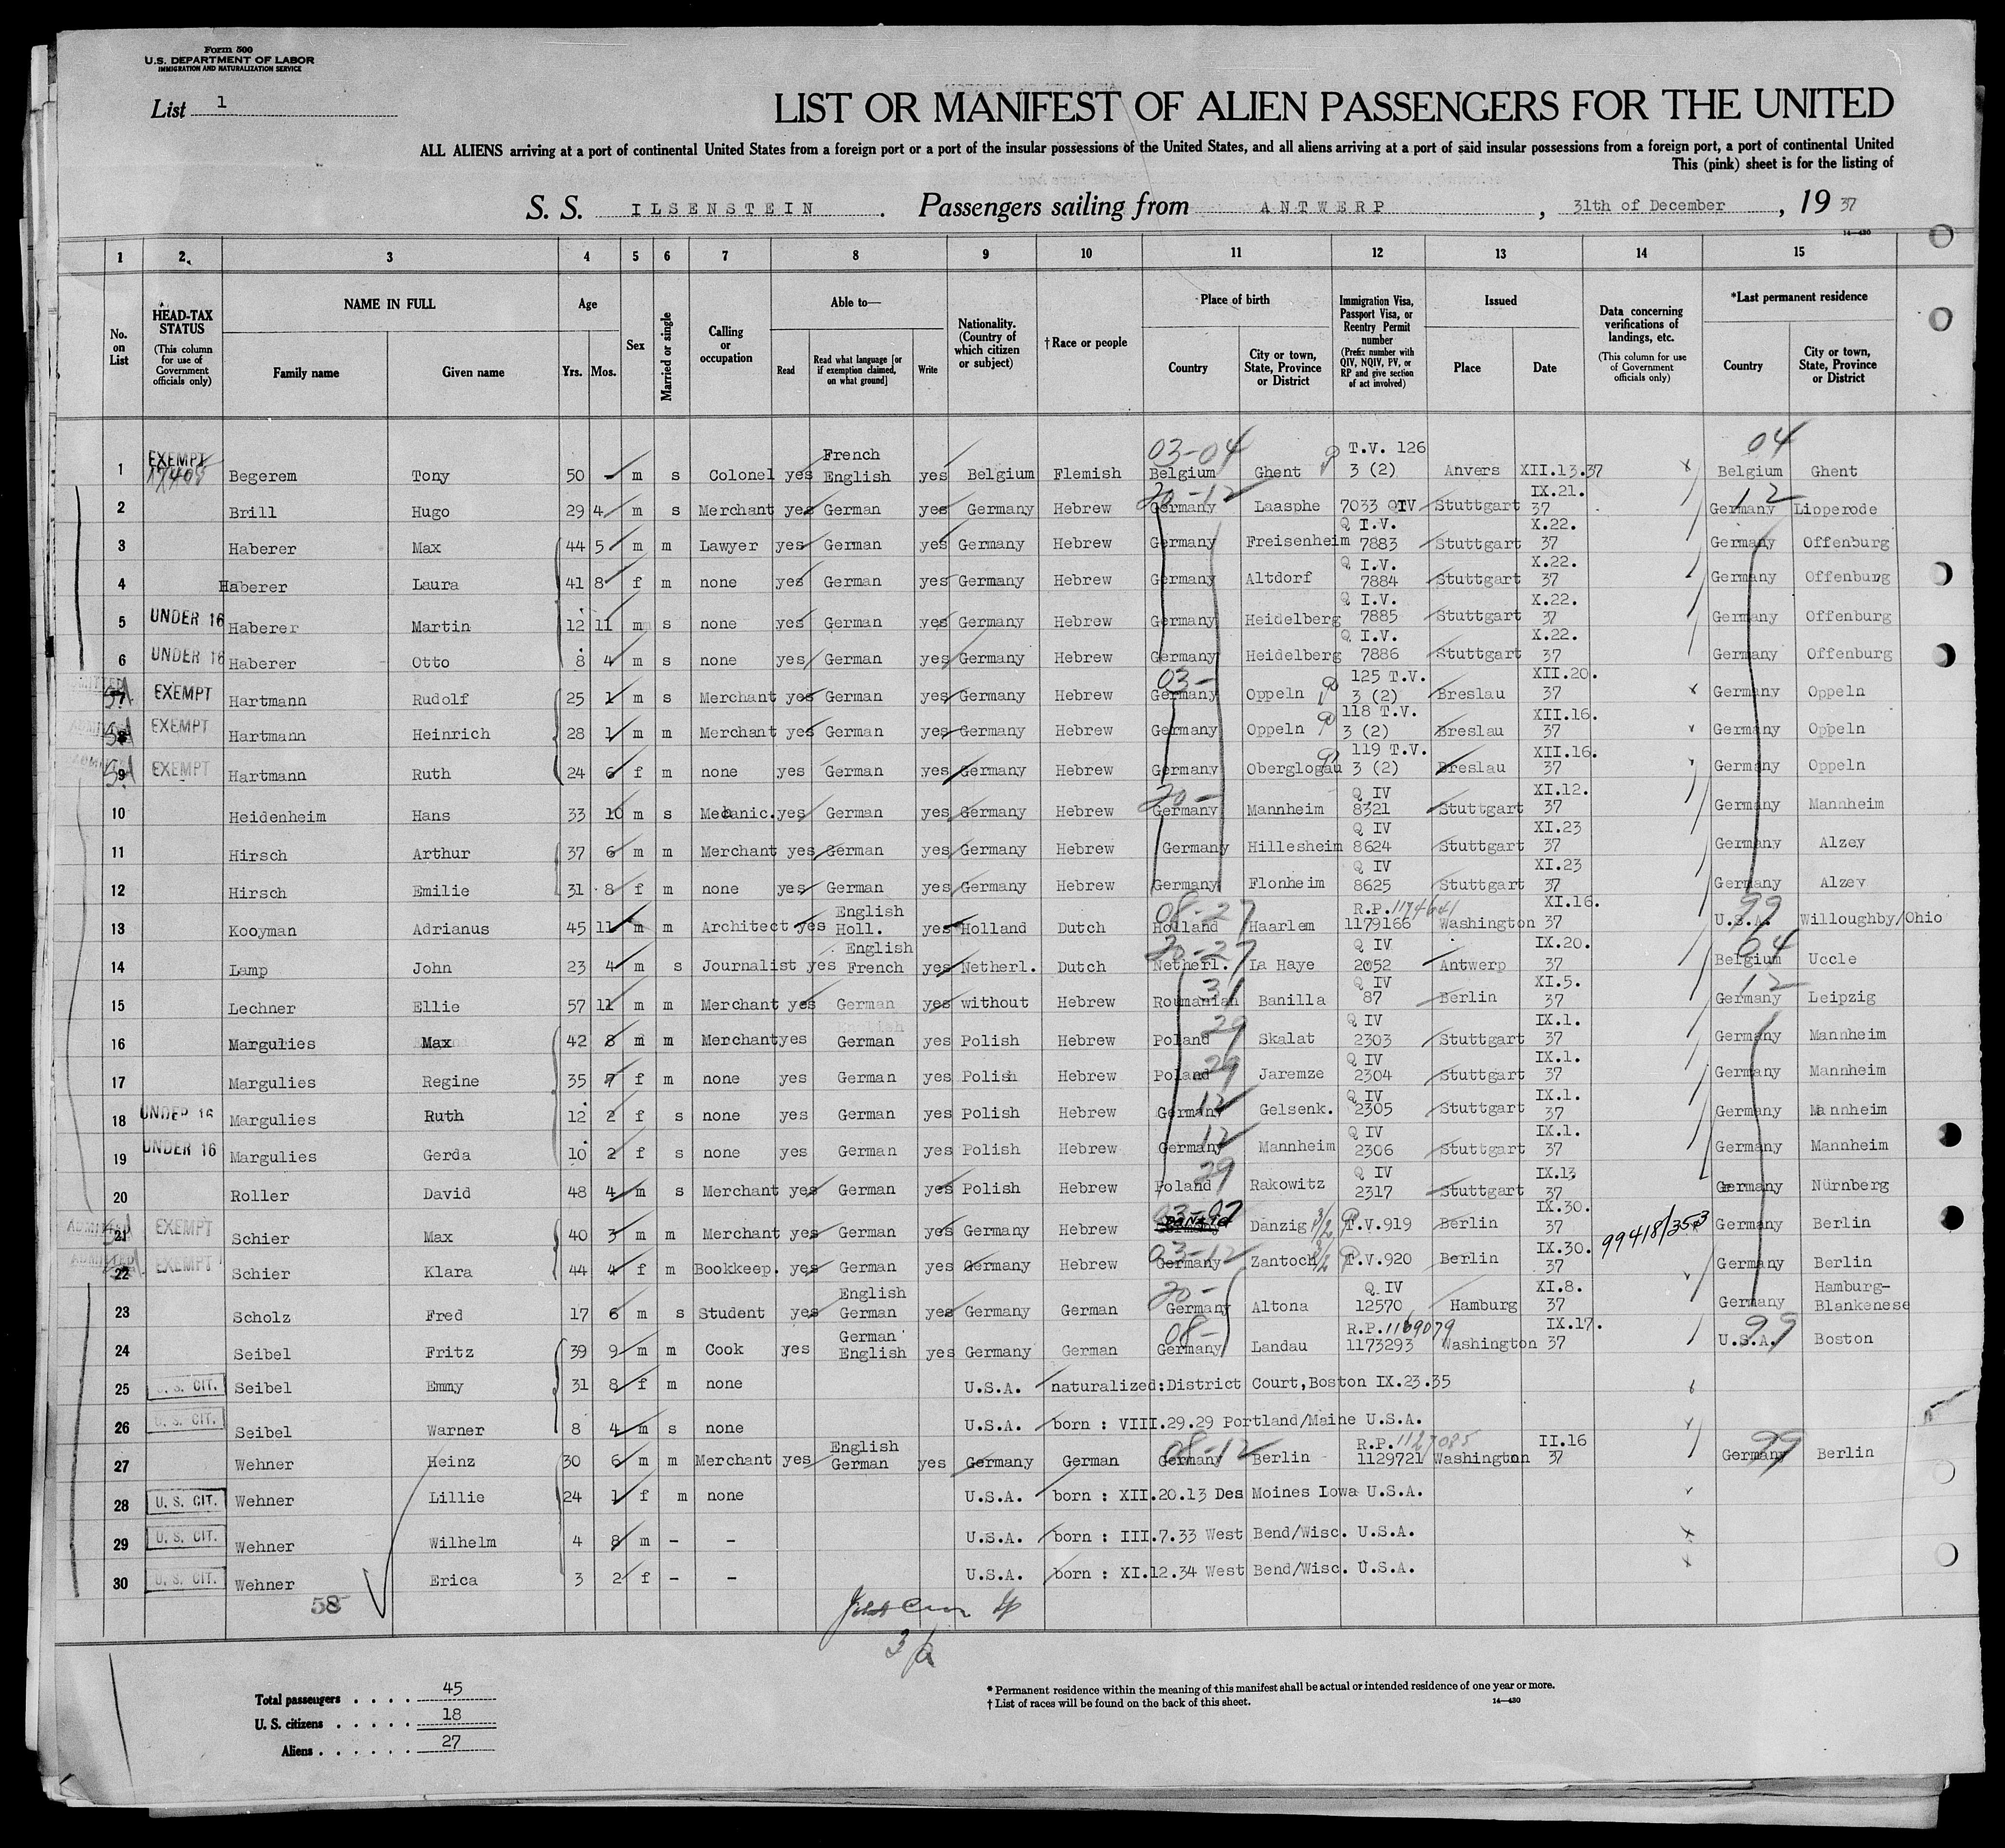 Form 500
U.S. DEPARTMENT OF LABOR
IMMIGRATION AND NATURALIZATION SERVICE
List 1
LIST OR MANIFEST OF ALIEN PASSENGERS FOR THE UNITED
ALL ALIENS arriving at a port of continental United States from a foreign port or a port of the insular possessions of the United States, and all aliens arriving at a port of said insular possessions from a foreign port, a port of continental United
This (pink) sheet is for the listing of
S. S. ILSENSTEIN. Passengers sailing from ANTWERP, 31th of December, 19 37
14—430
1 2 3 4 5 6 7 8 9 10 11 12 13 14 15
No. on List
HEAD-TAX STATUS (This column for use of Government officials only)
NAME IN FULL Family name Given name
Age Yrs. Mos.
Sex
Married or single
Calling or occupation
Able to— Read Read what language [or if exemption claimed, on what ground] Write
Nationality. (Country of which citizen or subject)
†Race or people
Place of birth Country City or town, State, Province or District
Immigration Visa, Passport Visa, or Reentry Permit number (Prefix number with QIV, NQIV, PV, or RP and give section of act involved)
Issued Place Date
Data concerning verifications of landings, etc. (This column for use of Government officials only)
*Last permanent residence Country City or town, State, Province or District
1 EXEMPT Begerem Tony 50 - m s Colonel yes French English yes Belgium Flemish 03-04 Belgium Ghent T.V. 126 3 (2) Anvers XII.13.37 04 Belgium Ghent
2 Brill Hugo 29 4 m s Merchant yes German yes Germany Hebrew 20-12 Germany Laasphe 7033 QIV Stuttgart IX.21. 37 12 Germany Lipperode
3 Haberer Max 44 5 m m Lawyer yes German yes Germany Hebrew Germany Freisenheim Q I.V. 7883 Stuttgart X.22. 37 Germany Offenburg
4 Haberer Laura 41 8 f m none yes German yes Germany Hebrew Germany Altdorf Q I.V. 7884 Stuttgart X.22. 37 Germany Offenburg
5 UNDER 16 Haberer Martin 12 11 m s none yes German yes Germany Hebrew Germany Heidelberg Q I.V. 7885 Stuttgart X.22. 37 Germany Offenburg
6 UNDER 16 Haberer Otto 8 4 m s none yes German yes Germany Hebrew Germany Heidelberg Q I.V. 7886 Stuttgart X.22. 37 Germany Offenburg
7 EXEMPT Hartmann Rudolf 25 1 m s Merchant yes German yes Germany Hebrew 03- Germany Oppeln 125 T.V. 3 (2) Breslau XII.20. 37 Germany Oppeln
8 EXEMPT Hartmann Heinrich 28 1 m m Merchant yes German yes Germany Hebrew Germany Oppeln 118 T.V. 3 (2) Breslau XII.16. 37 Germany Oppeln
9 EXEMPT Hartmann Ruth 24 6 f m none yes German yes Germany Hebrew Germany Oberglogau 119 T.V. 3 (2) Breslau XII.16. 37 Germany Oppeln
10 Heidenheim Hans 33 10 m s Mecanic. yes German yes Germany Hebrew 20- Germany Mannheim Q IV 8321 Stuttgart XI.12. 37 Germany Mannheim
11 Hirsch Arthur 37 6 m m Merchant yes German yes Germany Hebrew Germany Hillesheim Q IV 8624 Stuttgart XI.23 37 Germany Alzey
12 Hirsch Emilie 31 8 f m none yes German yes Germany Hebrew Germany Flonheim Q IV 8625 Stuttgart XI.23 37 Germany Alzey
13 Kooyman Adrianus 45 11 m m Architect yes English Holl. yes Holland Dutch 08-27 Holland Haarlem R.P. 1174641 1179166 Washington XI.16. 37 99 U.S.A. Willoughby/Ohio
14 Lamp John 23 4 m s Journalist yes English French yes Netherl. Dutch 20-27 Netherl. La Haye Q IV 2052 Antwerp IX.20. 37 04 Belgium Uccle
15 Lechner Ellie 57 11 m m Merchant yes German yes without Hebrew 31 Roumanian Banilla Q IV 87 Berlin XI.5. 37 12 Germany Leipzig
16 Margulies Max 42 8 m m Merchant yes German yes Polish Hebrew 29 Poland Skalat Q IV 2303 Stuttgart IX.1. 37 Germany Mannheim
17 Margulies Regine 35 7 f m none yes German yes Polish Hebrew 29 Poland Jaremze Q IV 2304 Stuttgart IX.1. 37 Germany Mannheim
18 UNDER 16 Margulies Ruth 12 2 f s none yes German yes Polish Hebrew 12 Germany Gelsenk. Q IV 2305 Stuttgart IX.1. 37 Germany Mannheim
19 UNDER 16 Margulies Gerda 10 2 f s none yes German yes Polish Hebrew 12 Germany Mannheim Q IV 2306 Stuttgart IX.1. 37 Germany Mannheim
20 Roller David 48 4 m s Merchant yes German yes Polish Hebrew 29 Poland Rakowitz Q IV 2317 Stuttgart IX.13 37 Germany Nürnberg
21 ADMITTED EXEMPT Schier Max 40 3 m m Merchant yes German yes Germany Hebrew 03-07 Danzig Danzig 3/2 T.V.919 Berlin IX.30. 37 99418/353 Germany Berlin
22 ADMITTED EXEMPT Schier Klara 44 4 f m Bookkeep. yes German yes Germany Hebrew 03-12 Germany Zantoch 3/2 T.V.920 Berlin IX.30. 37 Germany Berlin
23 Scholz Fred 17 6 m s Student yes English German yes Germany German 20- Germany Altona Q IV 12570 Hamburg XI.8. 37 Germany Hamburg-Blankenese
24 Seibel Fritz 39 9 m m Cook yes German English yes Germany German 08- Germany Landau R.P. 1169079 1173293 Washington IX.17. 37 99 U.S.A. Boston
25 U. S. CIT. Seibel Emmy 31 8 f m none U.S.A. naturalized:District Court,Boston IX.23.35
26 U. S. CIT. Seibel Warner 8 4 m s none U.S.A. born : VIII.29.29 Portland/Maine U.S.A.
27 Wehner Heinz 30 6 m m Merchant yes English German yes Germany German 08-12 Germany Berlin R.P. 1127085 1129721 Washington II.16 37 99 Germany Berlin
28 U. S. CIT. Wehner Lillie 24 1 f m none U.S.A. born : XII.20.13 Des Moines Iowa U.S.A.
29 U. S. CIT. Wehner Wilhelm 4 8 m - - U.S.A. born : III.7.33 West Bend/Wisc. U.S.A.
30 U. S. CIT. Wehner Erica 3 2 f - - U.S.A. born : XI.12.34 West Bend/Wisc. U.S.A.
58
Total passengers . . . . 45
U. S. citizens . . . . . 18
Aliens . . . . . . 27
* Permanent residence within the meaning of this manifest shall be actual or intended residence of one year or more.
† List of races will be found on the back of this sheet.
14—430